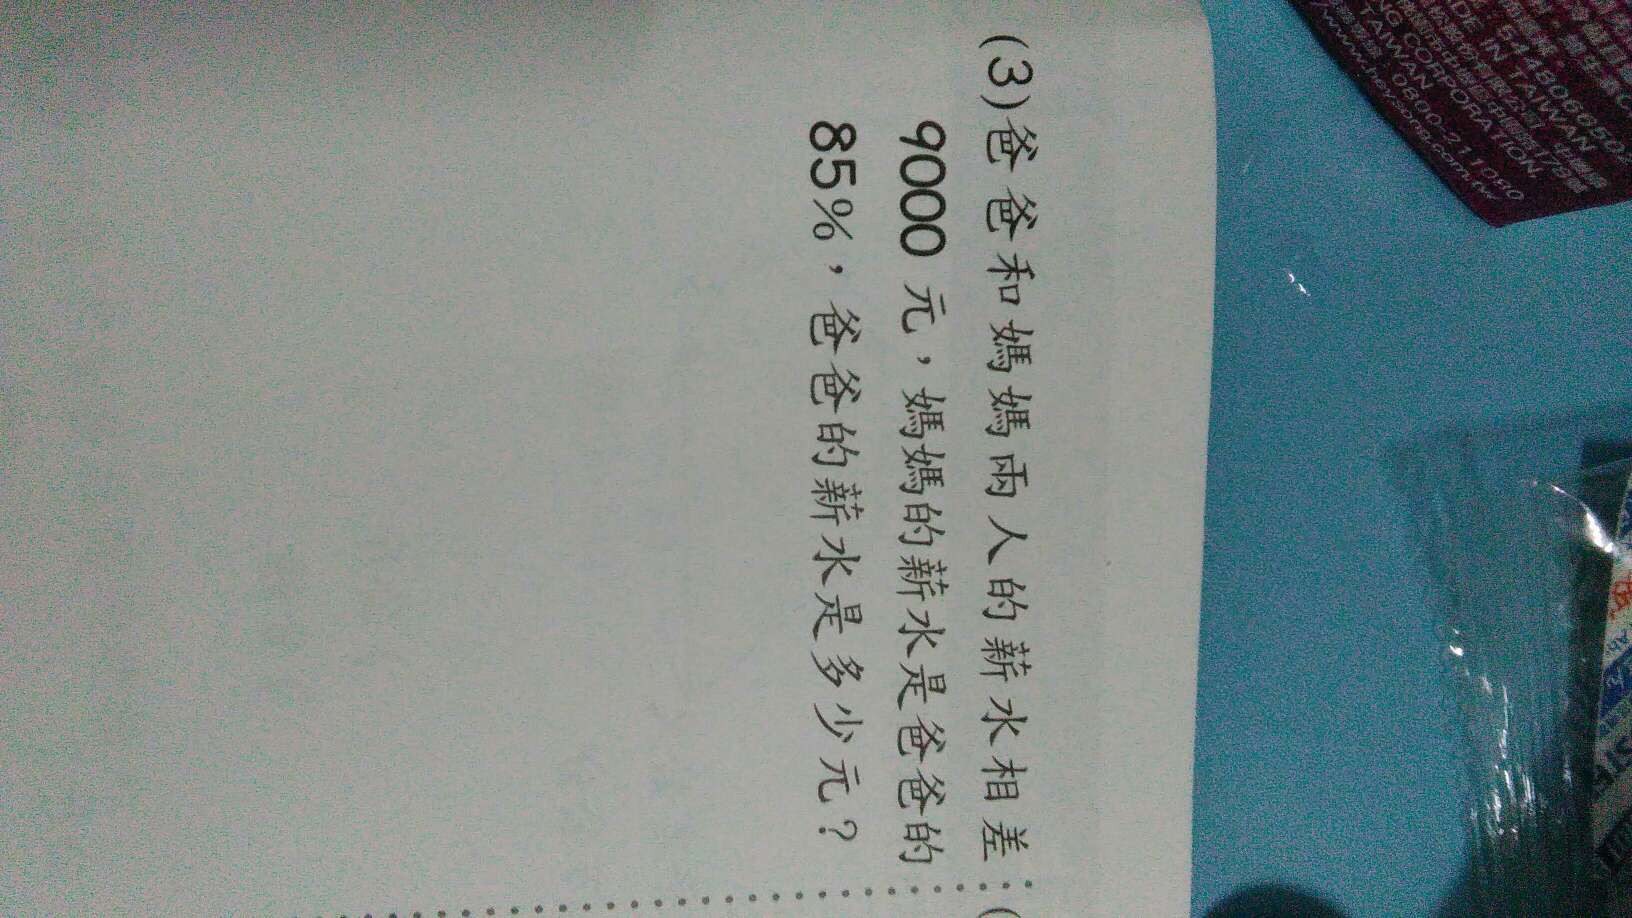 (3)爸爸和媽媽兩人的薪水相差
9000元，媽媽的薪水是爸爸的
85%，爸爸的薪水是多少元？
(
54806650
DE IN TAIWAN
NG CORPORATION.
TAIWAN
0800-211080